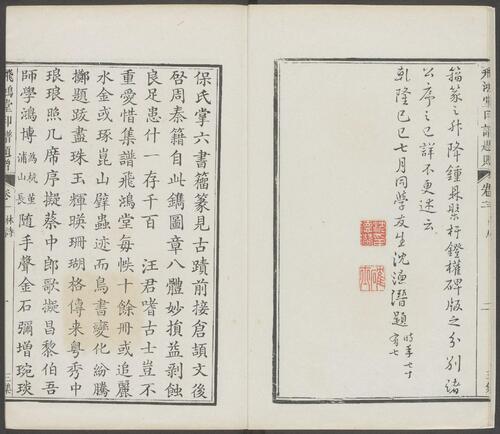 籀篆之升降鍾鼎槃杅鐙權碑版之分別緒
公序之已詳不更述云
乾隆己巳七月同學友生沈德潛題 時年七十
有七
保氏掌六書籀篆見古蹟前接倉頡文後
啓周秦籍自此鐫圖章八體妙損益剥蝕
良足患什一存千百 汪君嗜古士豈不
重愛惜集譜飛鴻堂每帙十餘冊或追麗
水金或琢崑山璧蟲迹而鳥書變化紛騰
擲題跋盡珠玉輝暎珊瑚格傳來粤秀中
琅琅照几席序擬蔡中郎歌擬昌黎伯吾
師學鴻博 為杭堇
浦山長 随手聲金石彌增琬琰
飛鴻堂印譜題辭 卷三